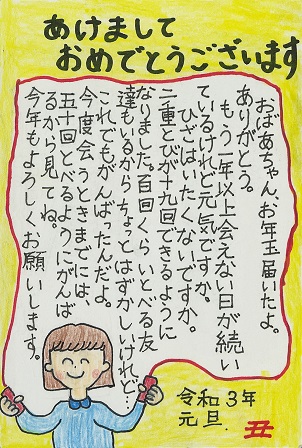 あけまして
おめでとうございます
おばあちゃん、お年玉届いたよ。
ありがとう。
もう一年以上会えない日が続い
ているけれど元気ですか。
ひざはいたくないですか。
二重とびが十九回できるように
なりました。百回くらいとべる友
達もいるからちょっとはずかしいけれど…
これでもがんばったんだよ。
今度会うときまでには、
五十回とべるようにがんば
るから見てね。
今年もよろしくお願いします。
令和3年
元旦
丑